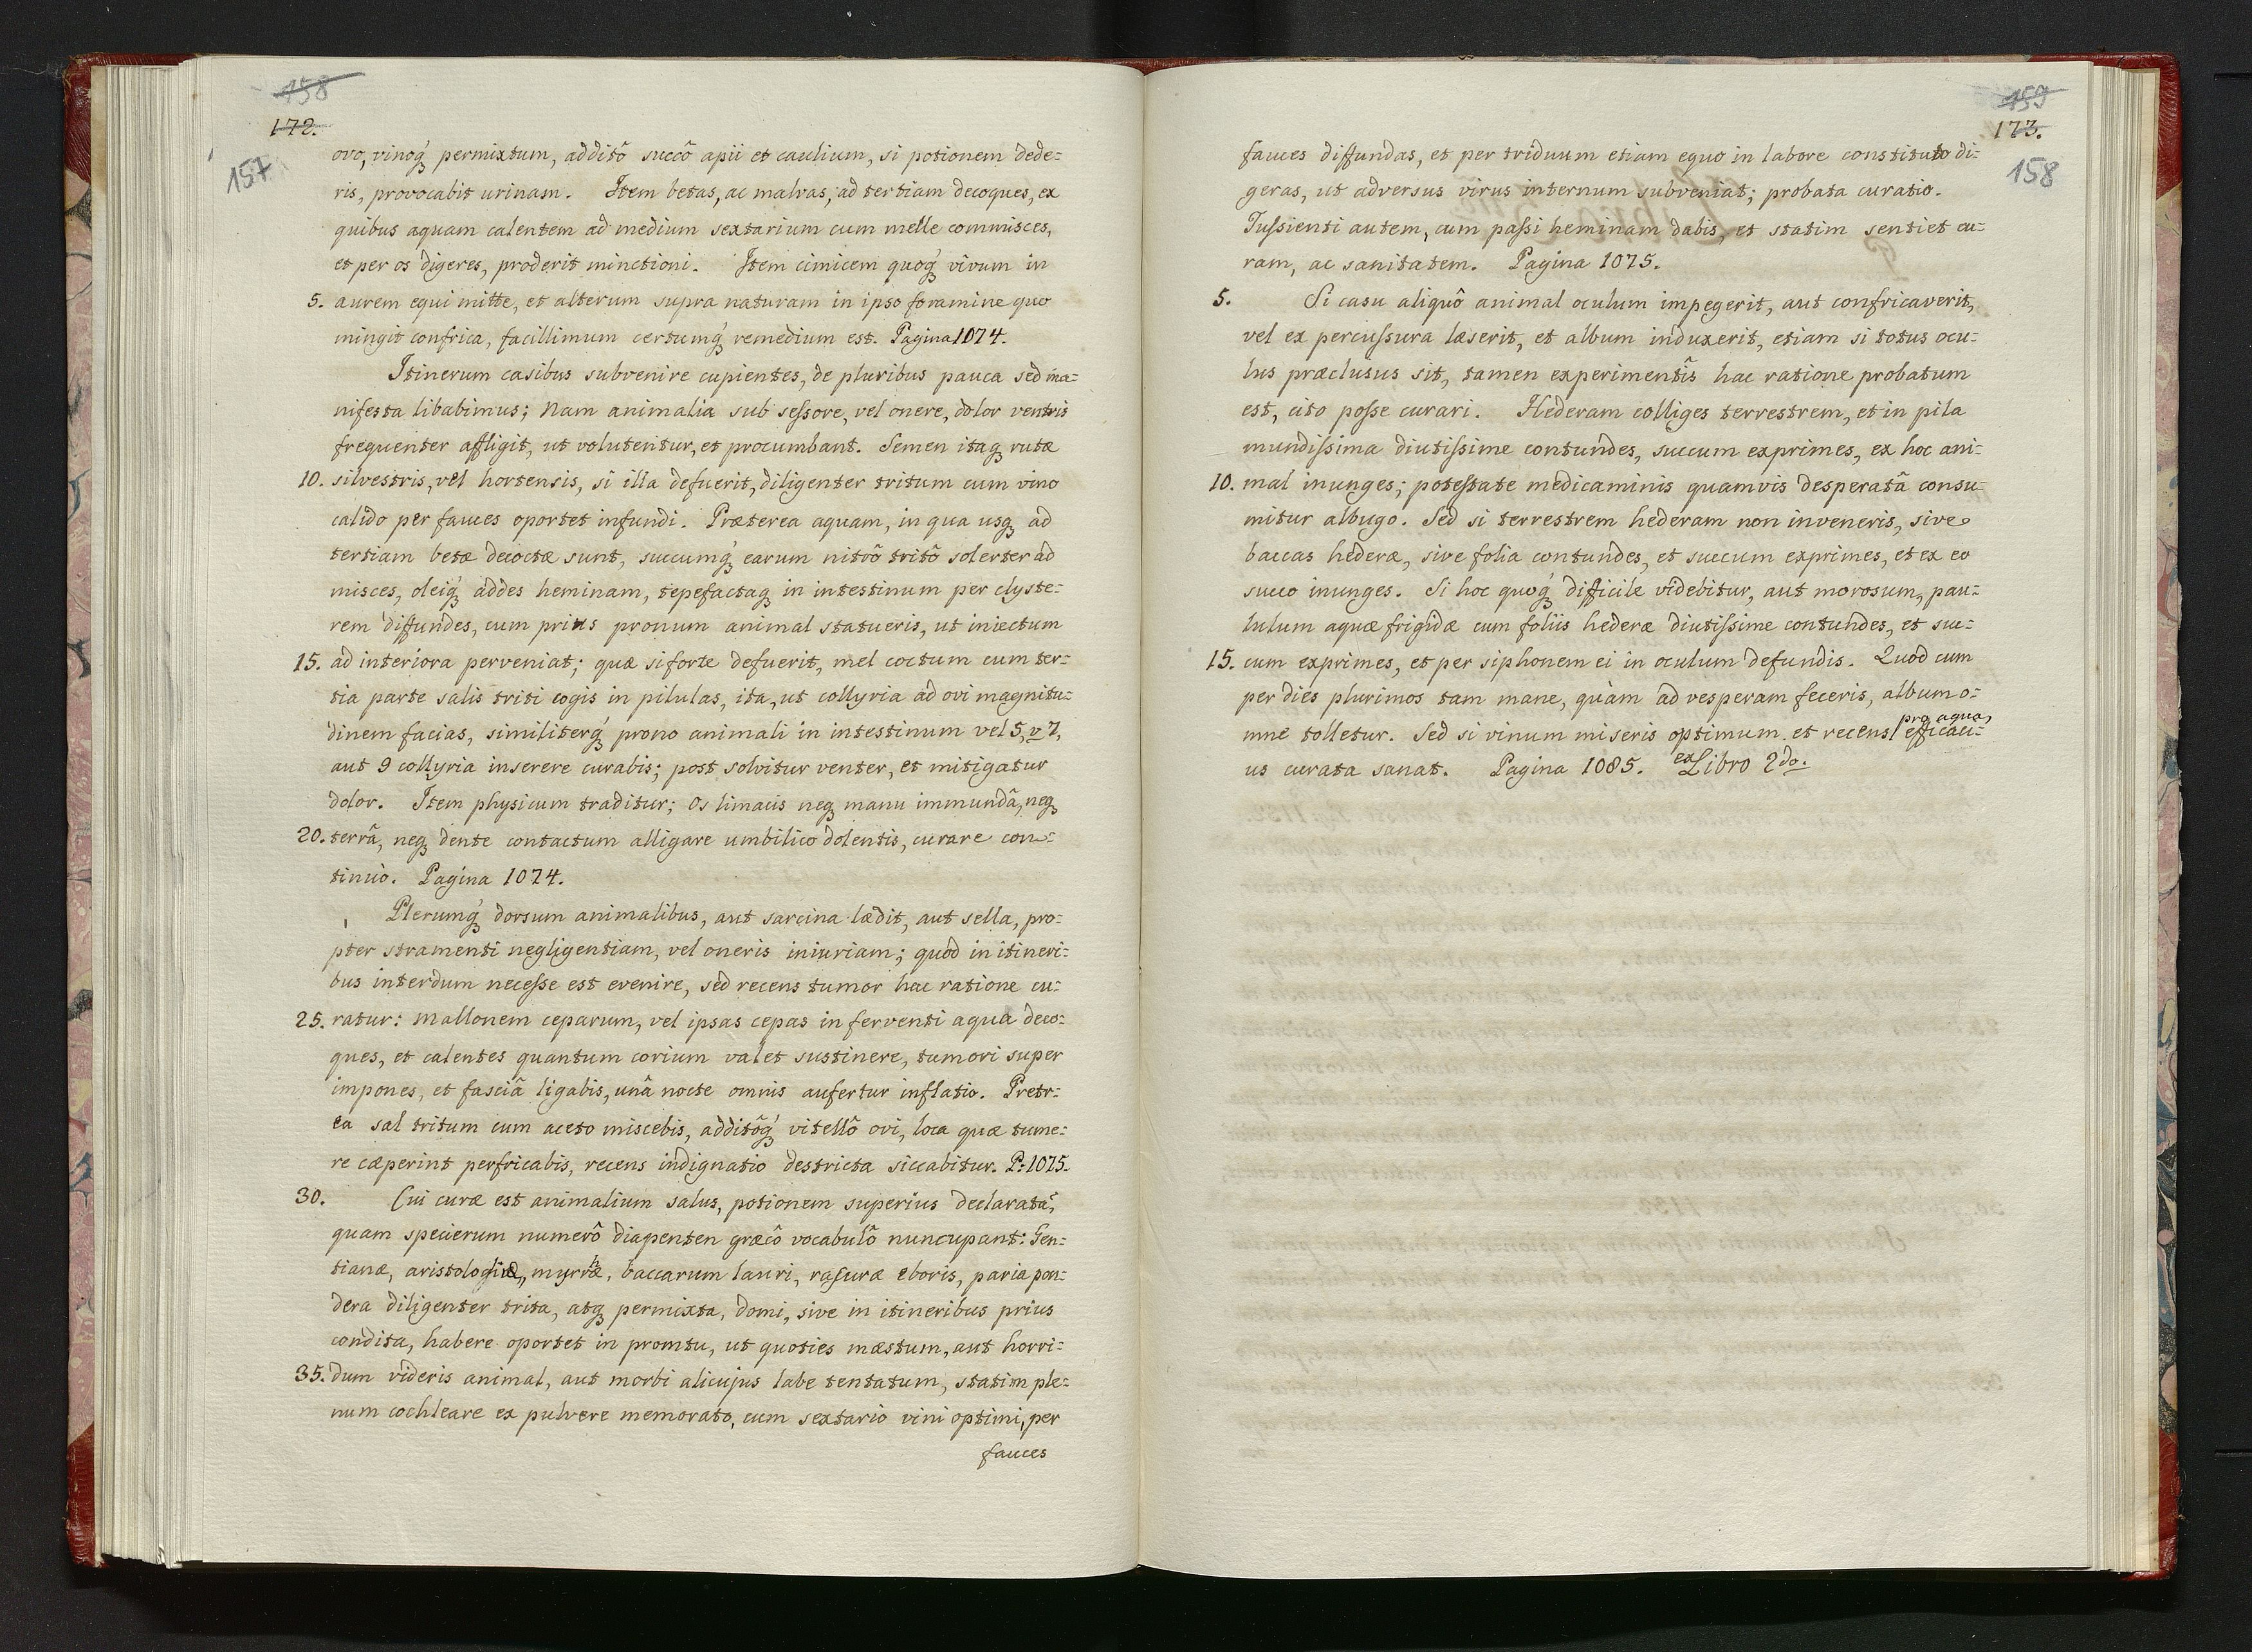 158
172.
157
ovo, vinoq́ permixtum, additô succô apii et caulium, si potionem dede:
ris, provocabit urinam. Item betas, ac malvas, ad tertiam decoques, ex
quibus aquam calentem ad medium sextarium cum melle commisces,
et per os digeres, proderit minctioni. Item cimicem quoq́ vivum in
5. aurem equi mitte, et alterum supra naturam in ipso foramine quo
mingit confrica, facillimum certumq́ remedium est. Pagina 1074.
Itinerum casibus subvenire cupientes, de pluribus pauca sed ma:
nifesta libabimus; Nam animalia sub sessore, vel onere, dolor ventris
frequenter affligit, ut volutentur, et procumbant. Semen itaq rutæ
10. silvestris, vel hortensis, si illa defuerit, diligenter tritum cum vino
calido per fauces oportet infundi. Præterea aquam, in qua usq ad
tertiam betæ decoctæ sunt, succumq́ earum nitrô tritô solerter ad
misces, oleiq́ addes heminam, tepefactaq in intestinum per clyste:
rem diffundes, cum prius pronum animal statueris, ut iniectum
15. ad interiora perveniat; quæ si forte defuerit, mel coctum cum ter:
tia parte salis triti cogis in pilulas, ita, ut collyria ad ovi magnitu:
dinem facias, similiterq́ prono animali in intestinum vel 5, v 7,
aut 9 collyria inserere curabis; post solvitur venter, et mitigatur
dolor. Item physicum traditur; os limacis neq manu immundâ, neq
20. terrâ, neq dente contactum alligare umbilico dolentis, curare con:
tinuò. Pagina 1074.
Plerumq́ dorsum animalibus, aut sarcina lædit, aut sella, pro:
pter stramenti negligentiam, vel oneris iniuriam; quod in itineri:
bus interdum necesse est evenire, sed recens tumor hac ratione cu:
25. ratur: Mallonem ceparum, vel ipsas cepas in ferventi aqua deco:
ques, et calentes quantum corium valet sustinere, tumori super
impones, et fasciâ ligabis, unâ nocte omnis aufertur inflatio. Pretr:
ea sal tritum cum aceto miscebis, additôq́ vitellô ovi, loca quæ tume:
re cæperint perfricabis, recens indignatio destricta siccabitur. P: 1075.
30. Cui curæ est animalium salus, potionem superius declaratã,
quam specierum numerô diapenten græcô vocabulô nuncupant: Gen:
tianæ, aristologiæ, myrrhæ, baccarum lauri, rasuræ eboris, paria pon:
dera diligenter trita, atq permixta, domi, sive in itineribus prius
condita, habere oportet in promtu, ut quoties mæstum, aut horri:
35. dum videris animal, aut morbi alicujus labe tentatum, statim ple:
num cochleare ex pulvere memorato, cum sextario vini optimi, per
fauces
159
173.
158
fauces diffundas, et per triduum etiam equo in labore constituto di:
geras, ut adversus virus internum subveniat; probata curatio.
Tussienti autem, cum passi heminam dabis, et statim sentiet cu:
ram, ac sanitatem. Pagina 1075.
5. Si casu aliquô animal oculum impegerit, aut confricaverit,
vel ex percussura læserit, et album induxerit, etiam si totus ocu:
lus præclusus sit, tamen experimentîs hac ratione probatum
est, cito posse curari. Hederam colliges terrestrem, et in pila
mundissima diutissime contundes, succum exprimes, ex hoc ani:
10. mal inunges; potestate medicaminis quamvis desperatâ consu:
mitur albugo. Sed si terrestrem hederam non inveneris, sive
baccas hederæ, sive folia contundes, et succum exprimes, et ex eo
succo inunges. Si hoc quoq́ difficile videbitur, aut morosum, pau:
lulum aquæ frigidæ cum foliis hederæ diutissime contundes, et suc:
15. cum exprimes, et per siphonem ei in oculum defundis. Quod cum
per dies plurimos tam mane, quàm ad vesperam feceris, album o:
mne tolletur. Sed si vinum miseris optimum et recens pro aqua, efficaci:
us curata sanat. Pagina 1085. ex Libro 2do.